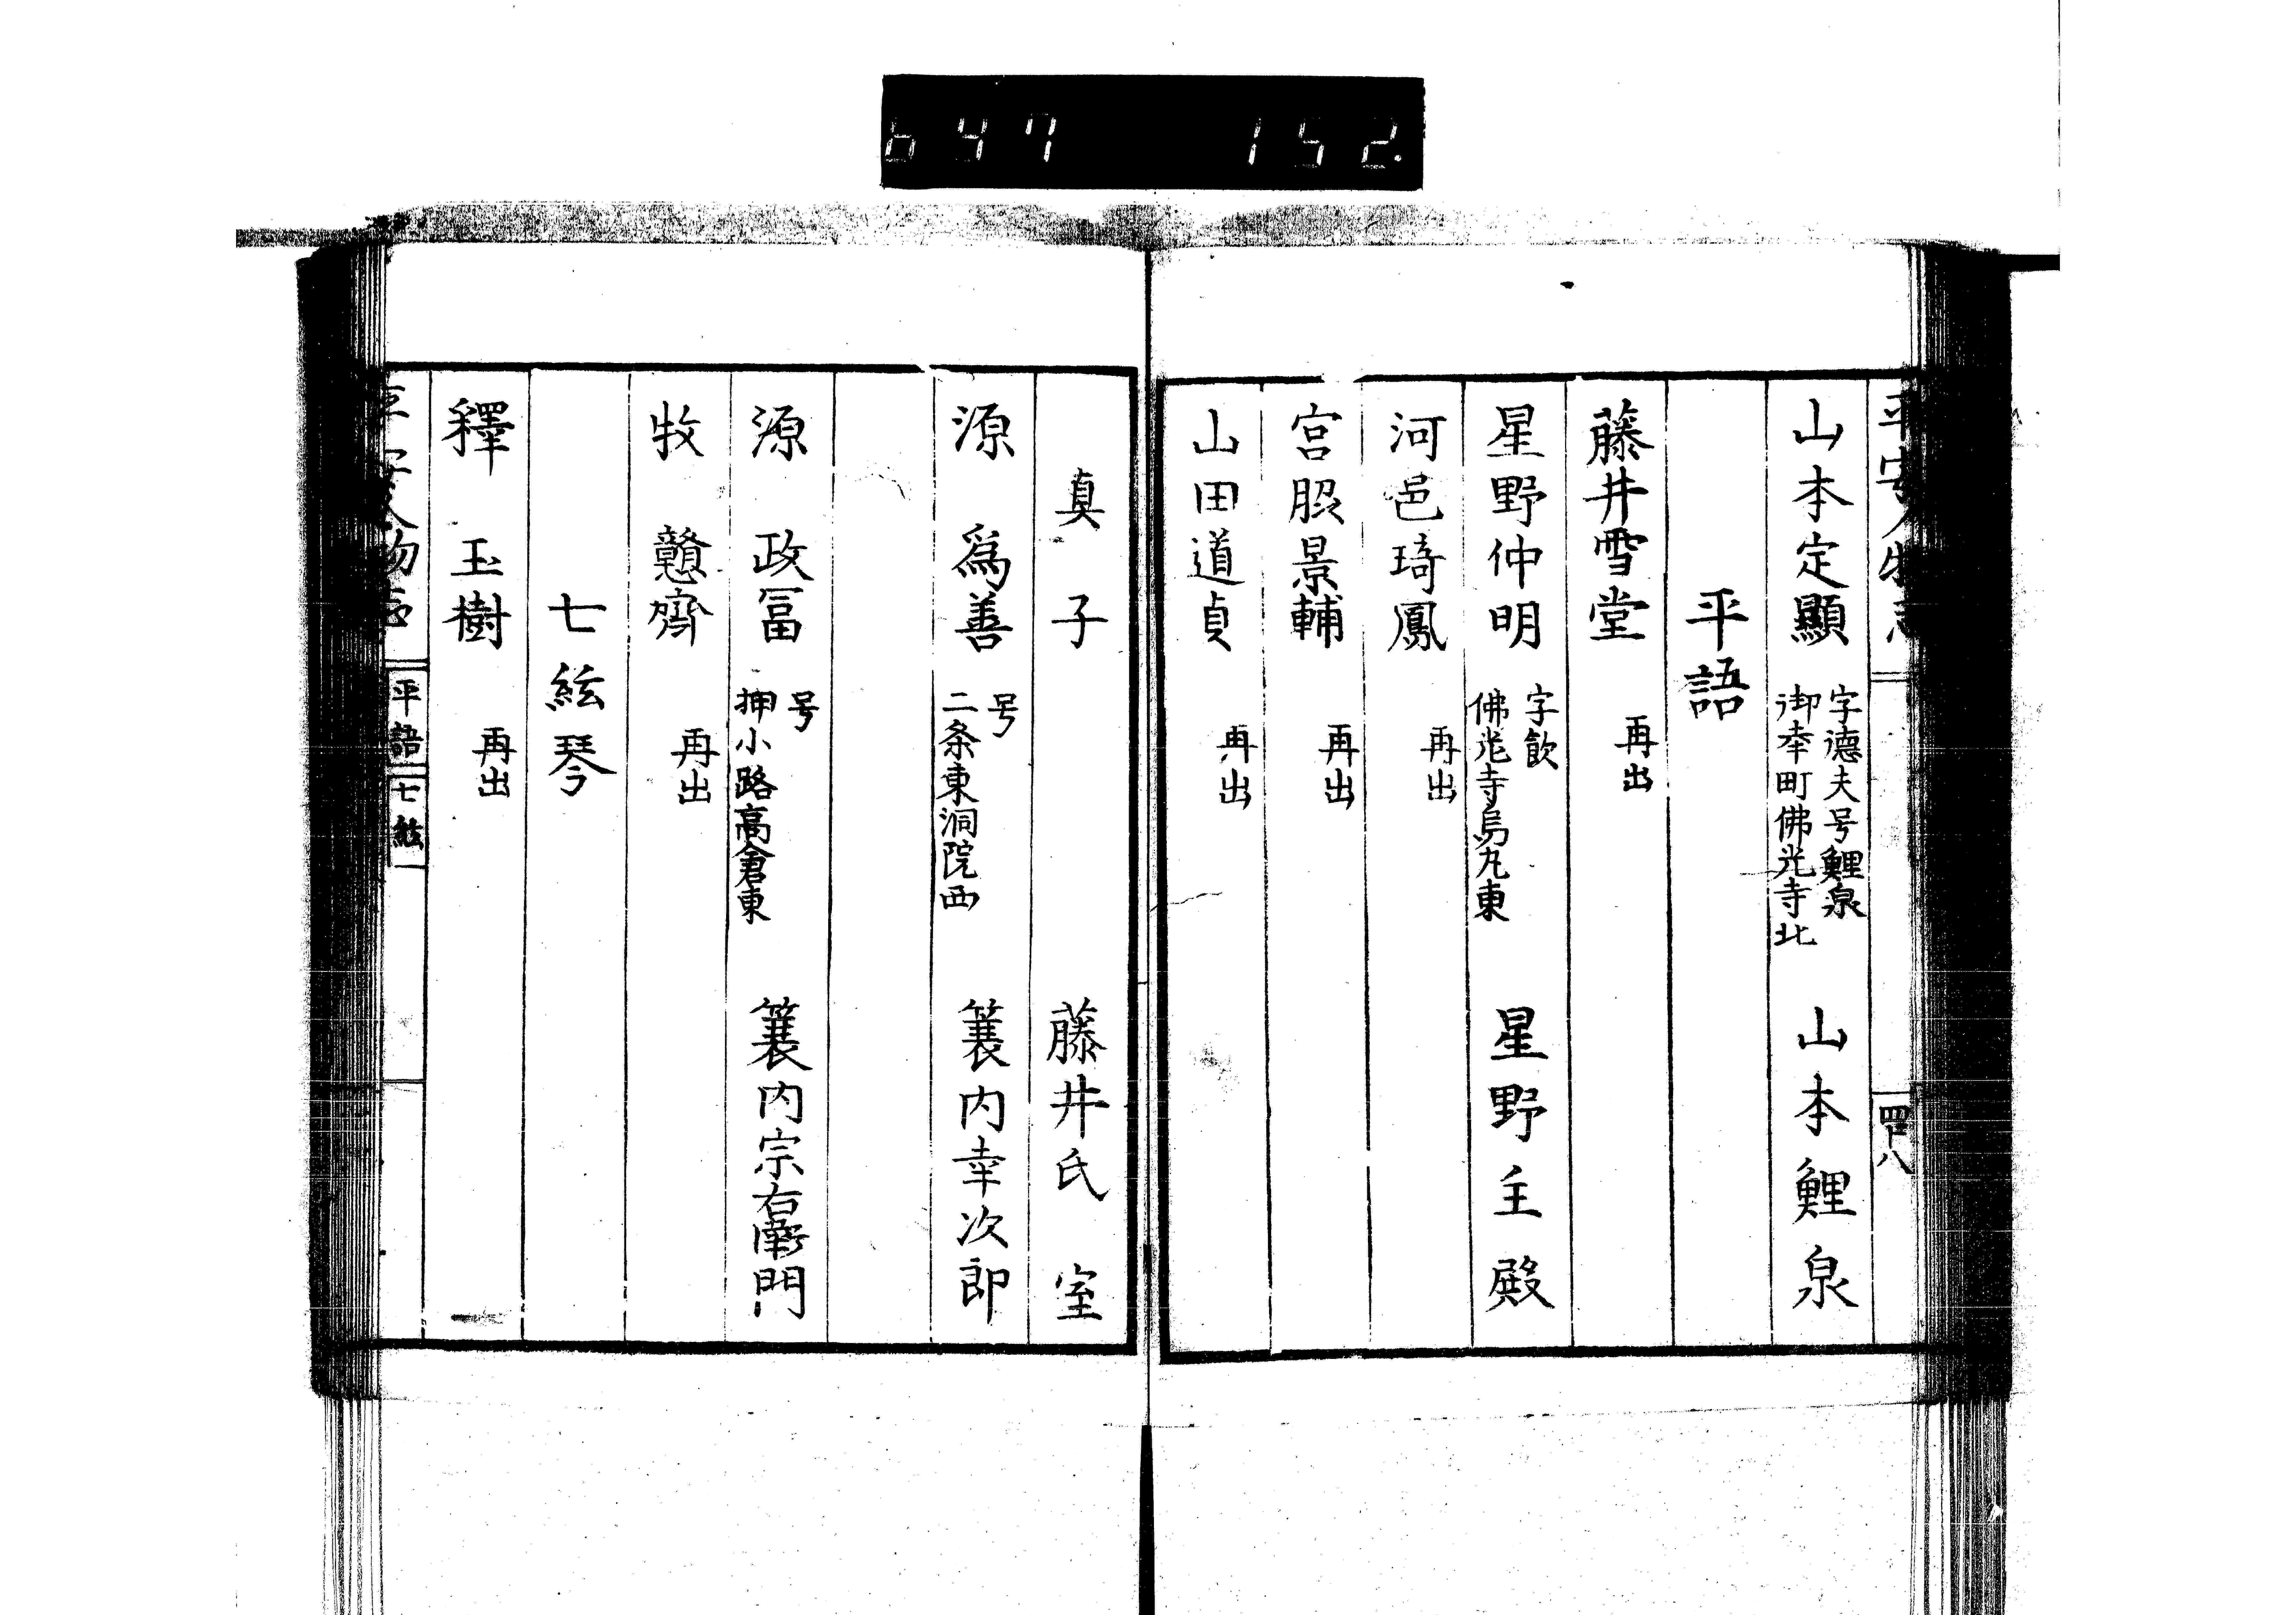 647 152.
平安人物志
四十八
山本定顯 字德夫号鯉泉 御幸町佛光寺北 山本鯉泉
平語
藤井雪堂 再出
星野仲明 字飲 佛光寺烏丸東 星野主殿
河邑琦鳳 再出
宮𦚰景輔 再出
山田道貞 再出
真子 藤井氏 室
源 爲善 号 二条東洞院西 簑内幸次郎
源 政冨 号 押小路高倉東 簑内宗右衛門
牧 戇齋 再出
七絃琴
釋 玉樹 再出
平安人物志
平語
七絃